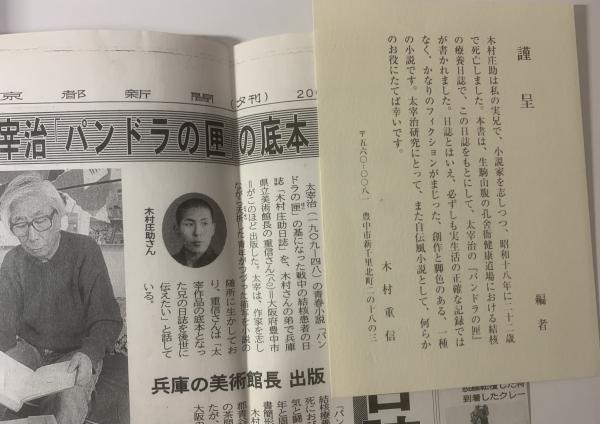 謹呈
編者
木村庄助は私の実兄で、小説家を志しつつ、昭和十八年に二十二歳
で死亡しました。本書は、生駒山腹の孔舎衙健康道場における結核
の療養日誌で、この日誌をもとにして、太宰治の『パンドラの匣』
が書かれました。日誌とはいえ、必ずしも実生活の正確な記録では
なく、かなりのフィクションがまじった、創作と脚色のある、一種
の小説です。太宰治研究にとって、また自伝風小説として、何らか
のお役にたてば幸いです。
木村重信
〒五六〇-〇〇八一 豊中市新千里北町二の十八の三
京都新聞
(夕刊)
20
宰治「パンドラの匣」の底本
木村庄助さん
太宰治(一九〇九-四八)の青春小説「パン
ドラの匣」の基になった戦中の結核患者の日
誌「木村庄助日誌」を、木村さんの弟で兵庫
県立美術館長の重信さん(八〇)=大阪府豊中市
=がこのほど出版した。太宰は、作家を志し
ながら夭折した青年がつづった描写を小説の
随所に生かしてお
り、重信さんは「太
宰作品の底本となっ
た兄の日誌を後世に
伝えたい」と話して
いる。
兵庫の美術館長 出版
日誌
到着したクレー